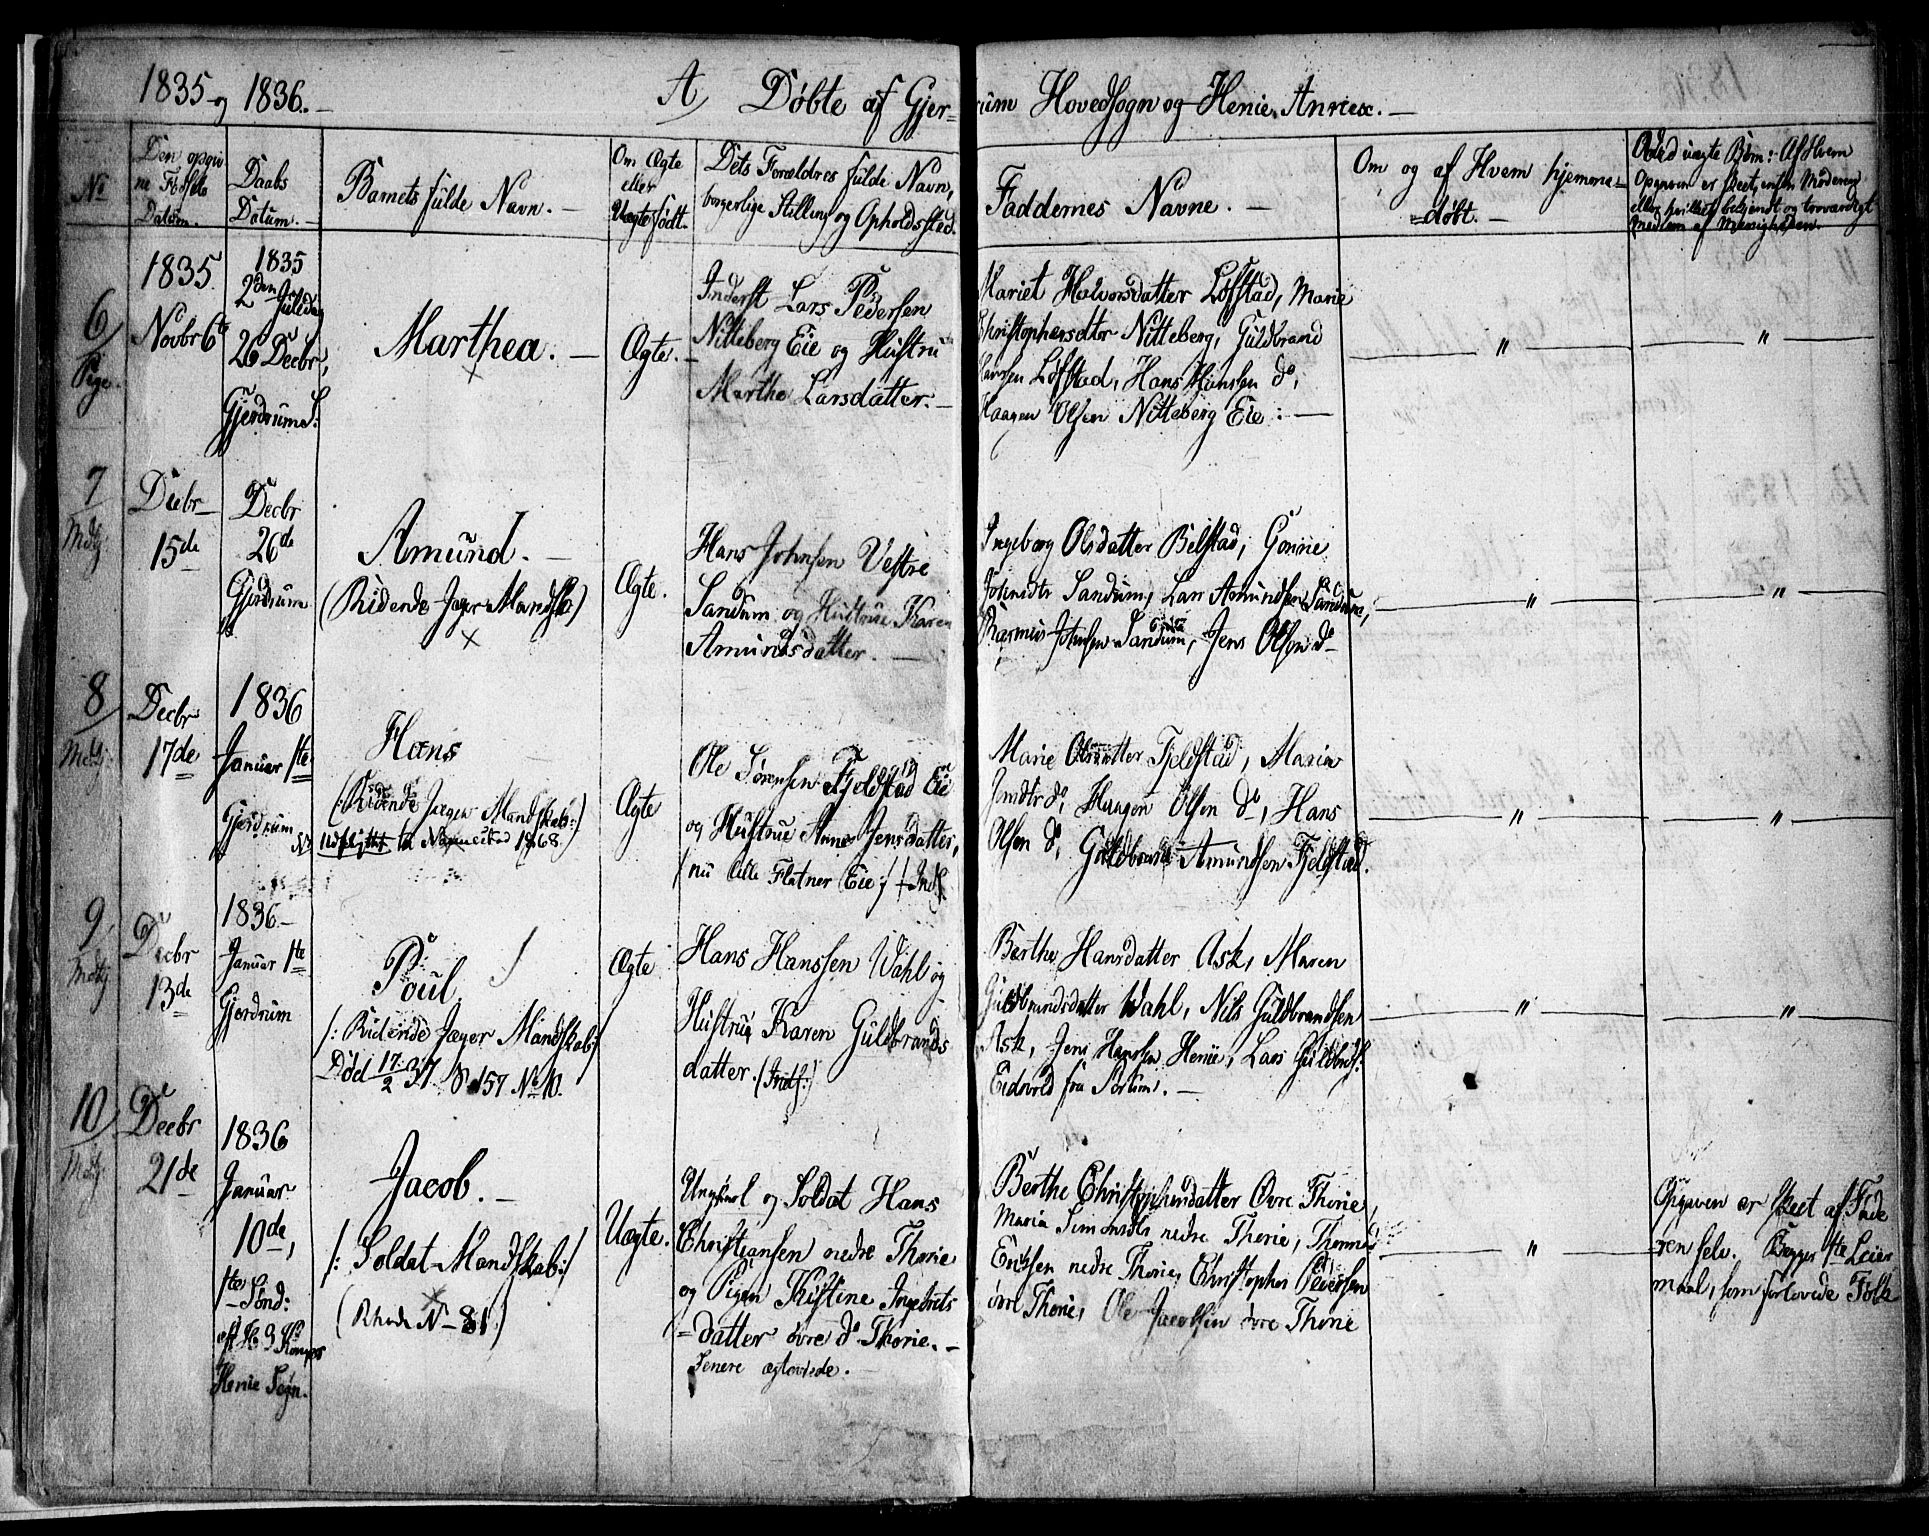 1835 og 1836. —
A, Døbte af Gjer-
rum Hovedsogn og Henie Annex. —
No
Den opgiv
ne Fødsels
Datum.
Daabs
Datum. —
Barnets fulde Navn. —
Om Ægte
eller
Uægte født.
Dets Forældres fulde Navn,
borgerlige Stilling og Opholdssted.
Faddernes Navne. —
Om og af Hvem hjemme-
=døbt. —
Ved uægte Børn: Af Hvem
Opgaven er skeet, enten Moderen
eller hvilket bekjendt og troværdigt
Medlem af Menigheden.
6
Pige.
1835.
Novbr 6te
1835
2den Juledag
26 Decbr,
Gjerdrums S:
Marthea. —
×
Ægte. —
Inderst Lars Pedersen
Nitteberg Eie og Hustru
Marthe Larsdatter. —
Mariet Halvorsdatter Løfstad, Marie
Christophersdtter Nitteberg, Guldbrand
Hansen Løfstad, Hans Hansen do,
Haagen Olsen Nitteberg Eie : —
"
"
7
Mdg
Decbr
15de
Decbr
26de
Gjerdrum
Amund. —
(Ridende Jæger Mandsk:)
×
Ægte.
Hans Johnsen Vestre
Sandum og Hustrue Karen
Amundsdatter. —
Ingeborg Olsdatter Belstad, Gunne
Johnsdtr Sandum, Lars Amundsen Sandum,
Rasmus Johnsen Sandum, Jens Olsen do
"
"
8
Mdg:
Decbr
17de
1836
Januar 1te
Gjerdrum
Hans
(:Ridende Jæger Mandskab:)
Udflyttet til Nannestad 1868.
Ægte
Ole Sørensen Fjeldstad Eie
og Hustrue Anne Jensdatter,
/nu lille Flatner Eie;/ /Inds.
Marie Olsdatter Fjeldstad, Maria
Jensdtr do, Haagen Olsen do, Hans
Olsen do, Guldbrand Amundsen Fjeldstad.
"
"
9
Mdg
Decbr
13de
1836 —
Januar 1te
Gjerdrum
Poul
/: Ridende Jæger Mandskab:/
Død 17/2 37 S. 157 No 10.
Ægte
Hans Hanssen Wahl og
Hustrue Karen Guldbrands
datter. (Inds:)
Berthe Hansdatter Ask, Maren
Guldbrandsdatter Wahl, Nils Guldbrandsen
Ask, Jens Hanssen Henie, Lars Guldbrds:
Eidsvold fra Sørum. —
"
"
10
Mdg:
Decbr
21de
1836
Januar
10de,
1te Sønd:
eft. H. 3 Konger
Henie Sogn.
Jacob. —
/: Soldat-Mandskab:/
×
(Rhode No 81.)
Uægte.
Ungkarl og Soldat Hans
Christiansen nedre Thorie
og Pigen Kistine Ingebrets
=datter øvre do Thorie. —
Senere ægteviede. —
Berthe Christophersdatter Øvre Thorie,
Maria Simonsdtr nedre Thorie, Thomas
Enersen nedre Thorie, Christopher Pedersen
øvre Thorie, Ole Jacobsen øvre Thorie
"
Opgaven er skeet af Fade
ren selv. Begges 1te Leier
maal, som forlovede Folk